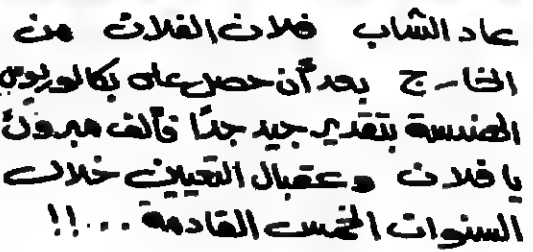 عاد الشاب فلان الفلاني من
الخارج بعد أن حصل على بكالوريوس
الهندسة بتقدير جيد جدًا فألف مبروك
يا فلان وعقبال التعيين خلال
السنوات الخمس القادمة ...!!